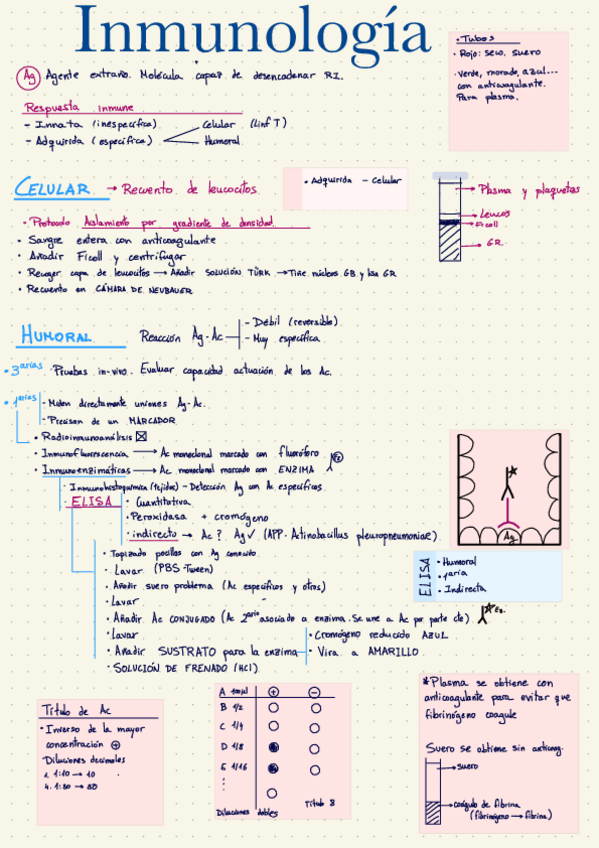 Inmunología
Ag Agente extraño. Molécula capaz de desencadenar R.I.
· Tubos
· Rojo: seco. suero
· Verde, morado, azul...
con anticoagulante.
Para plasma.
Respuesta inmune
- Innata (inespecífica)
- Adquirida (específica)
Celular (linf T)
Humoral
CELULAR → Recuento de leucocitos
· Adquirida - Celular
· Protocolo Aislamiento por gradiente de densidad
· Sangre entera con anticoagulante
· Añadir Ficoll y centrifugar
· Recoger capa de leucocitos → Añadir SOLUCIÓN TÜRK → Tiñe núcleos GB y lisa GR
· Recuento en CÁMARA DE NEUBAUER
→ Plasma y plaquetas
→ Leucos
→ Ficoll
→ GR
HUMORAL Reacción Ag-Ac
- Débil (reversible)
- Muy específica
· 3arias · Pruebas in-vivo. Evaluar capacidad actuación de los Ac.
· 1arias - Miden directamente uniones Ag-Ac.
- Precisan de un MARCADOR
· Radioinmunoanálisis
· Inmunofluorescencia → Ac monoclonal marcado con fluoróforo
· Inmunoenzimáticas → Ac monoclonal marcado con ENZIMA
· Inmunohistoquímica (tejidos) - Detección Ag con Ac específicos
· ELISA · Cuantitativa
· Peroxidasa + cromógeno
· indirecto → Ac? Ag✓ (APP - Actinobacillus pleuropneumoniae)
Ag
· Tapizado pocillos con Ag conocido
· Lavar (PBS-Tween)
· Añadir suero problema (Ac específicos y otros)
· Lavar
· Añadir Ac CONJUGADO (Ac 2ario asociado a enzima. Se une a Ac por parte cte)
· Lavar
· Añadir SUSTRATO para la enzima
· Cromógeno reducido AZUL
· Vira a AMARILLO
· SOLUCIÓN DE FRENADO (HCl)
ELISA
· Humoral
· 1aria
· Indirecta
Título de Ac
· Inverso de la mayor
concentración +
· Diluciones decimales
1. 1:10 → 10
4. 1:80 → 80
A total + -
B 1/2
C 1/4
D 1/8
E 1/16
Diluciones dobles
Título 8
* Plasma se obtiene con
anticoagulante para evitar que
fibrinógeno coagule
Suero se obtiene sin anticoag.
→ suero
→ coágulo de fibrina
(fibrinógeno → fibrina)